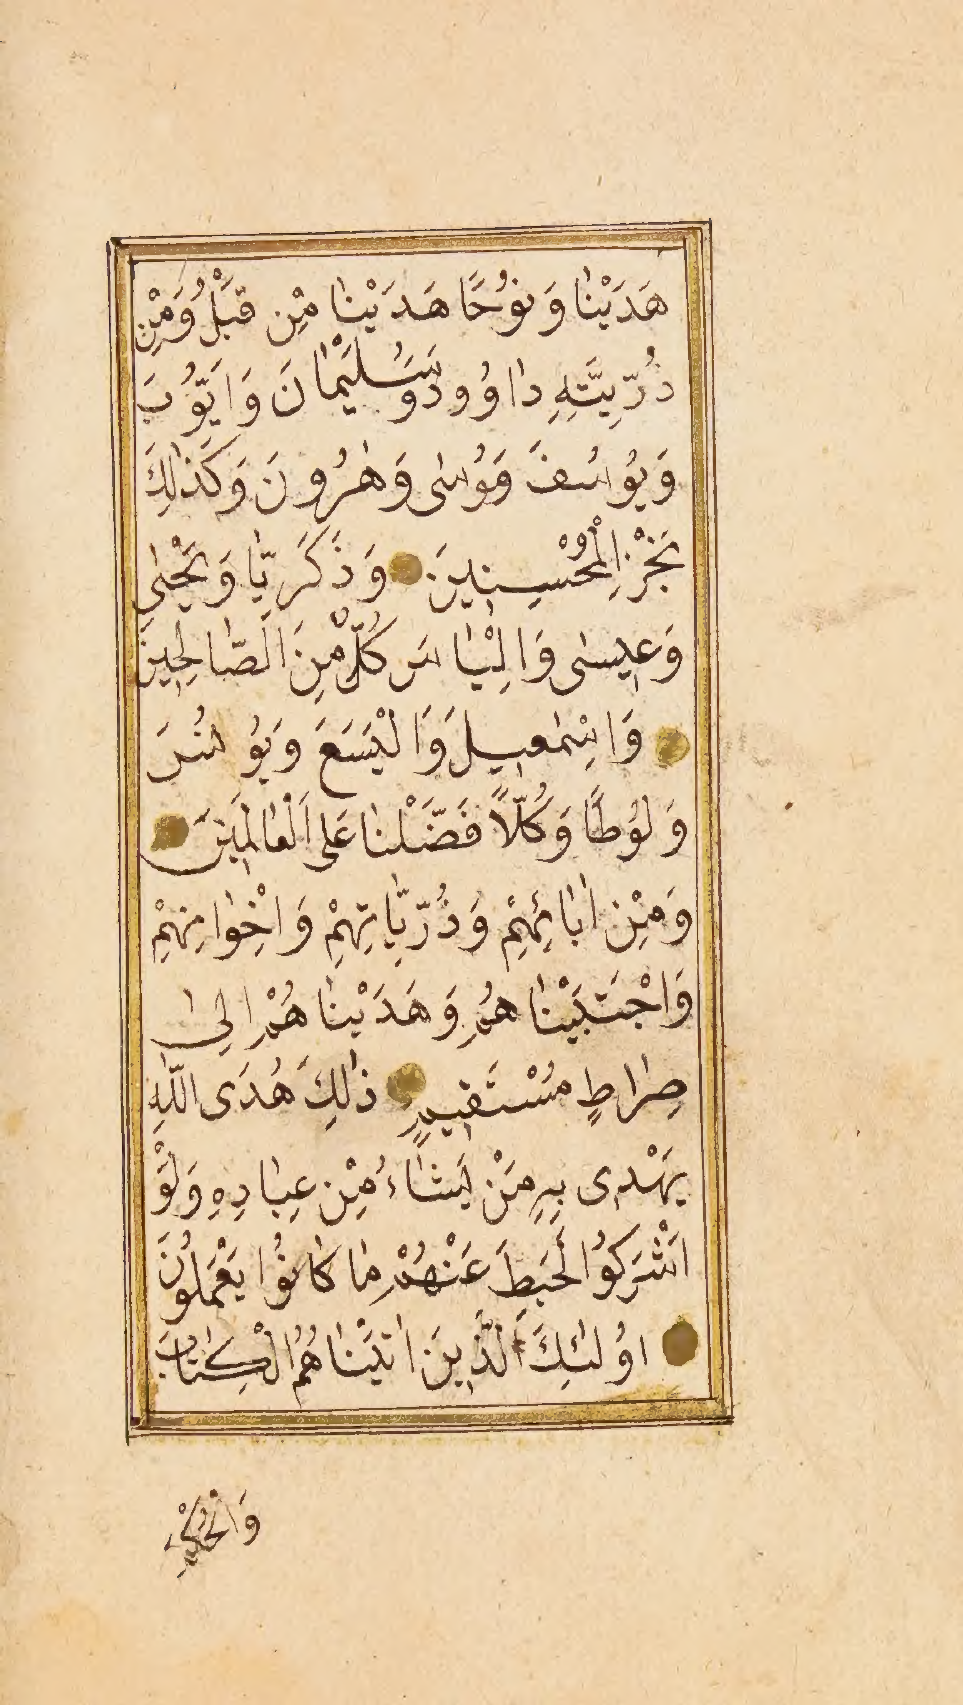 هَدَيْنَا وَنُوحًا هَدَيْنَا مِنْ قَبْلُ وَمِنْ
ذُرِّيَّتِهِ دَاوُودَ وَسُلَيْمَانَ وَاَيُّوبَ
وَيُوسُفَ وَمُوسٰى وَهٰرُونَ وَكَذٰلِكَ
نَجْزِي الْمُحْسِنِينَ وَذَكَرِيَّا وَيَحْيٰى
وَعِيسٰى وَاِلْيَاسَ كُلٌّ مِنَ الصَّالِحِينَ
وَاِسْمٰعِيلَ وَالْيَسَعَ وَيُونُسَ
وَلُوطًا وَكُلًّا فَضَّلْنَا عَلَى الْعَالَمِينَ
وَمِنْ اٰبَائِهِمْ وَذُرِّيَّاتِهِمْ وَاِخْوَانِهِمْ
وَاجْتَبَيْنَاهُمْ وَهَدَيْنَاهُمْ اِلٰى
صِرَاطٍ مُسْتَقِيمٍ ذٰلِكَ هُدَى اللّٰهِ
يَهْدِى بِهِ مَنْ يَشَاءُ مِنْ عِبَادِهِ وَلَوْ
اَشْرَكُوا لَحَبِطَ عَنْهُمْ مَا كَانُوا يَعْمَلُونَ
اُولٰئِكَ الَّذِينَ اٰتَيْنَاهُمُ الْكِتَابَ
وَالْحُكْمَ